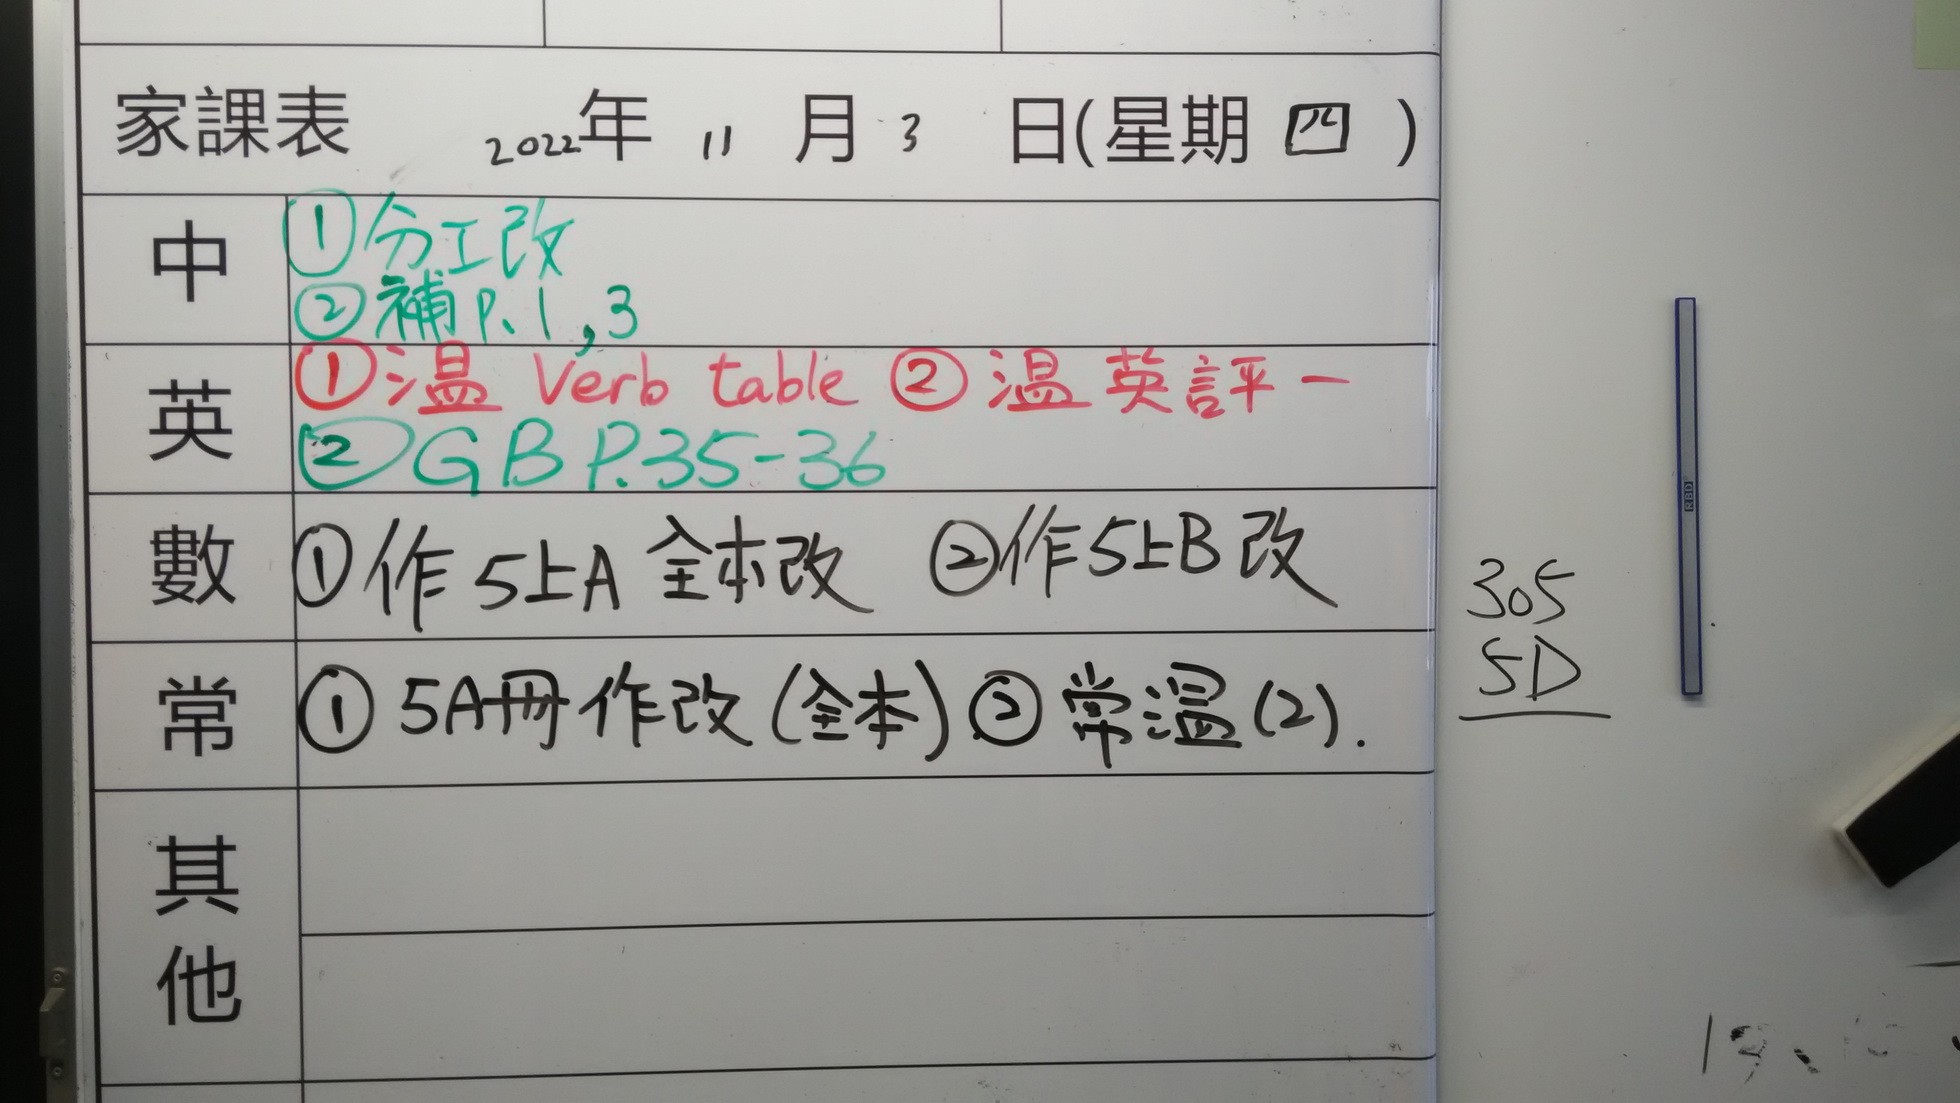 家課表 2022年 11 月 3 日(星期 四 )
中
①分工改
②補P.1,3
英
①温 Verb table ②温英評一
②GB P.35-36
數
①作5上A 全本改 ②作5上B改
常
①5A冊作改(全本)②常温(2).
其他
305
5D